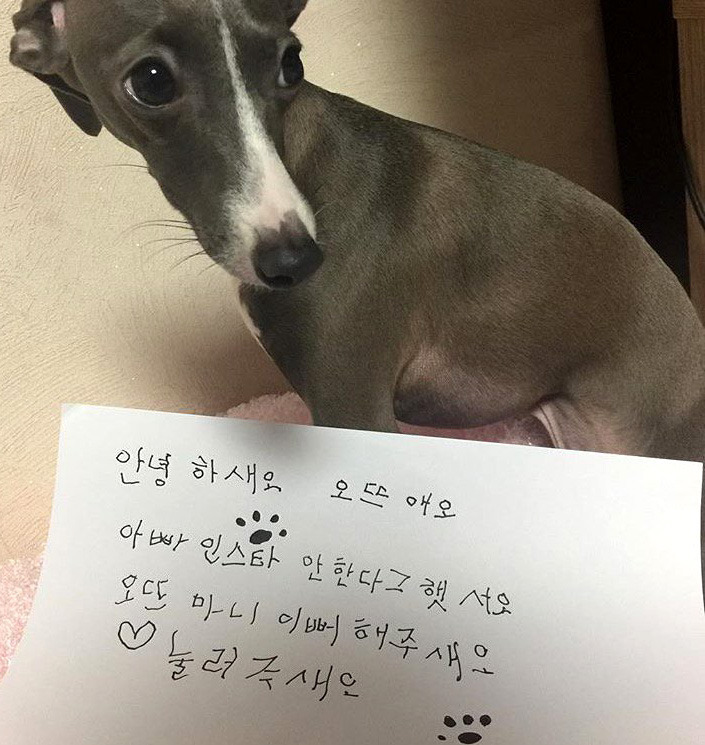 안녕 하새요 오뜨 애오
아빠 인스타 안한다그 햇 서오
오뜨 마니 이뻐 해주 새오
♡ 눌려 주 새오